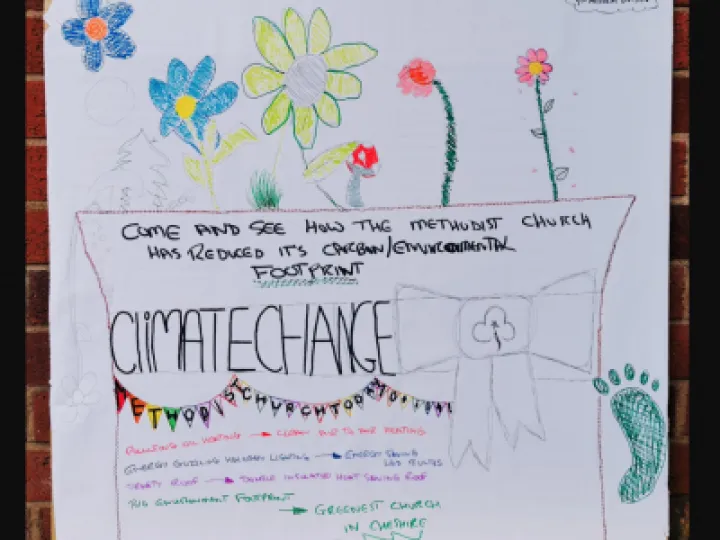 COME AND SEE HOW THE METHODIST CHURCH
HAS REDUCED IT'S CARBON/ENVIRONMENTAL
FOOTPRINT
CLIMATE CHANGE
METHODIST CHURCH TODMORDEN
POLLUTING OIL HEATING → CLEAN AIR TO AIR HEATING
ENERGY GUZZLING HALOGEN LIGHTING → ENERGY SAVING
LED
ROOF → DOUBLE INSULATED HEAT SAVING ROOF
BIG ENVIRONMENT FOOTPRINT
→ GREENEST CHURCH
IN CHESHIRE